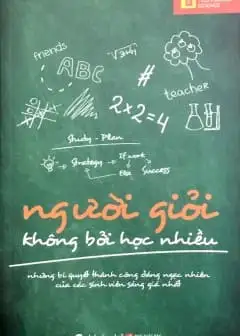 SCIENCE
friends
ABC
√344
#
teacher
2×2=4
Study - Plan
Strategy
If work
Else
Success
người giỏi
không bởi học nhiều
những bí quyết thành công đáng ngạc nhiên
của các sinh viên sáng giá nhất